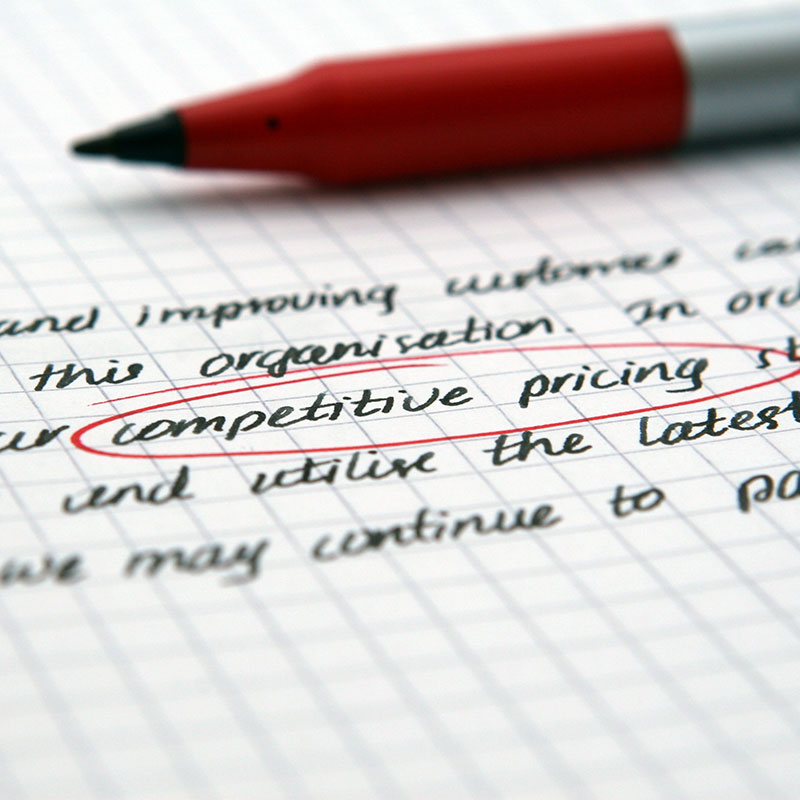 and improving customer
this organisation. In ord
ur competitive pricing st
and utilise the latest
we may continue to pa